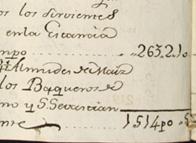 los sirvientes
en la Estancia
mpo ... 263.2.10
Almudes de Maiz
los Baqueros de
mo y S. Sevastian
1514 po